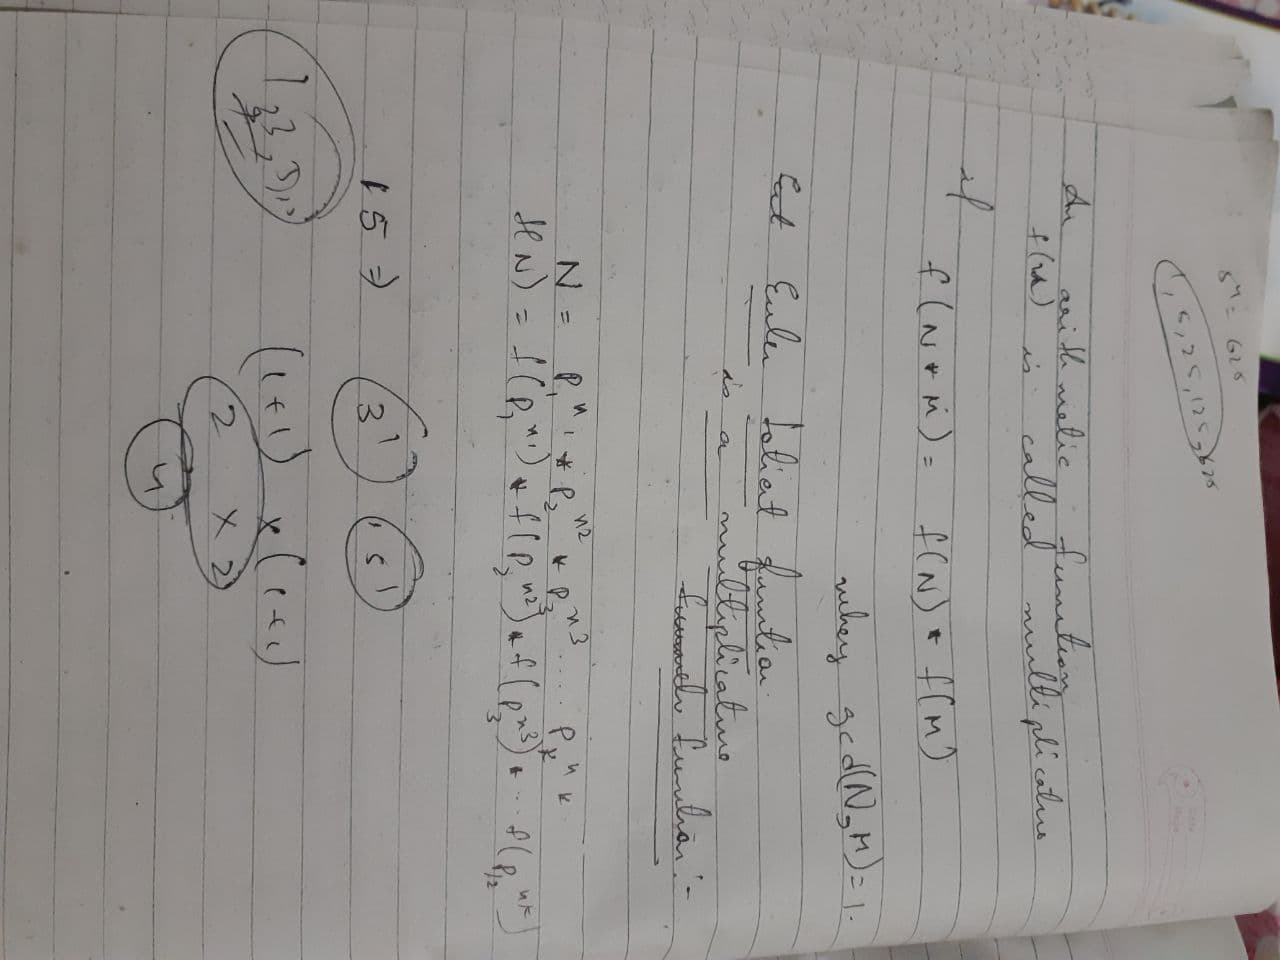 5⁴ = 625
1, 5, 25, 125, 625
An arithmetic function
f(n) is called multiplicative
if
f(N * M) = f(N) * f(M)
where gcd(N, M) = 1.
Euler Totient function
is a multiplicative
function :-
N = P₁ⁿ¹ * P₂ⁿ² * P₃ⁿ³ .... Pₖⁿᵏ
f(N) = f(P₁ⁿ¹) * f(P₂ⁿ²) * f(P₃ⁿ³) * .. f(Pₖⁿᵏ)
15 ⇒ 3¹ 5¹
1, 3, 5, 15
(1+1) × (1+1)
2 × 2
4